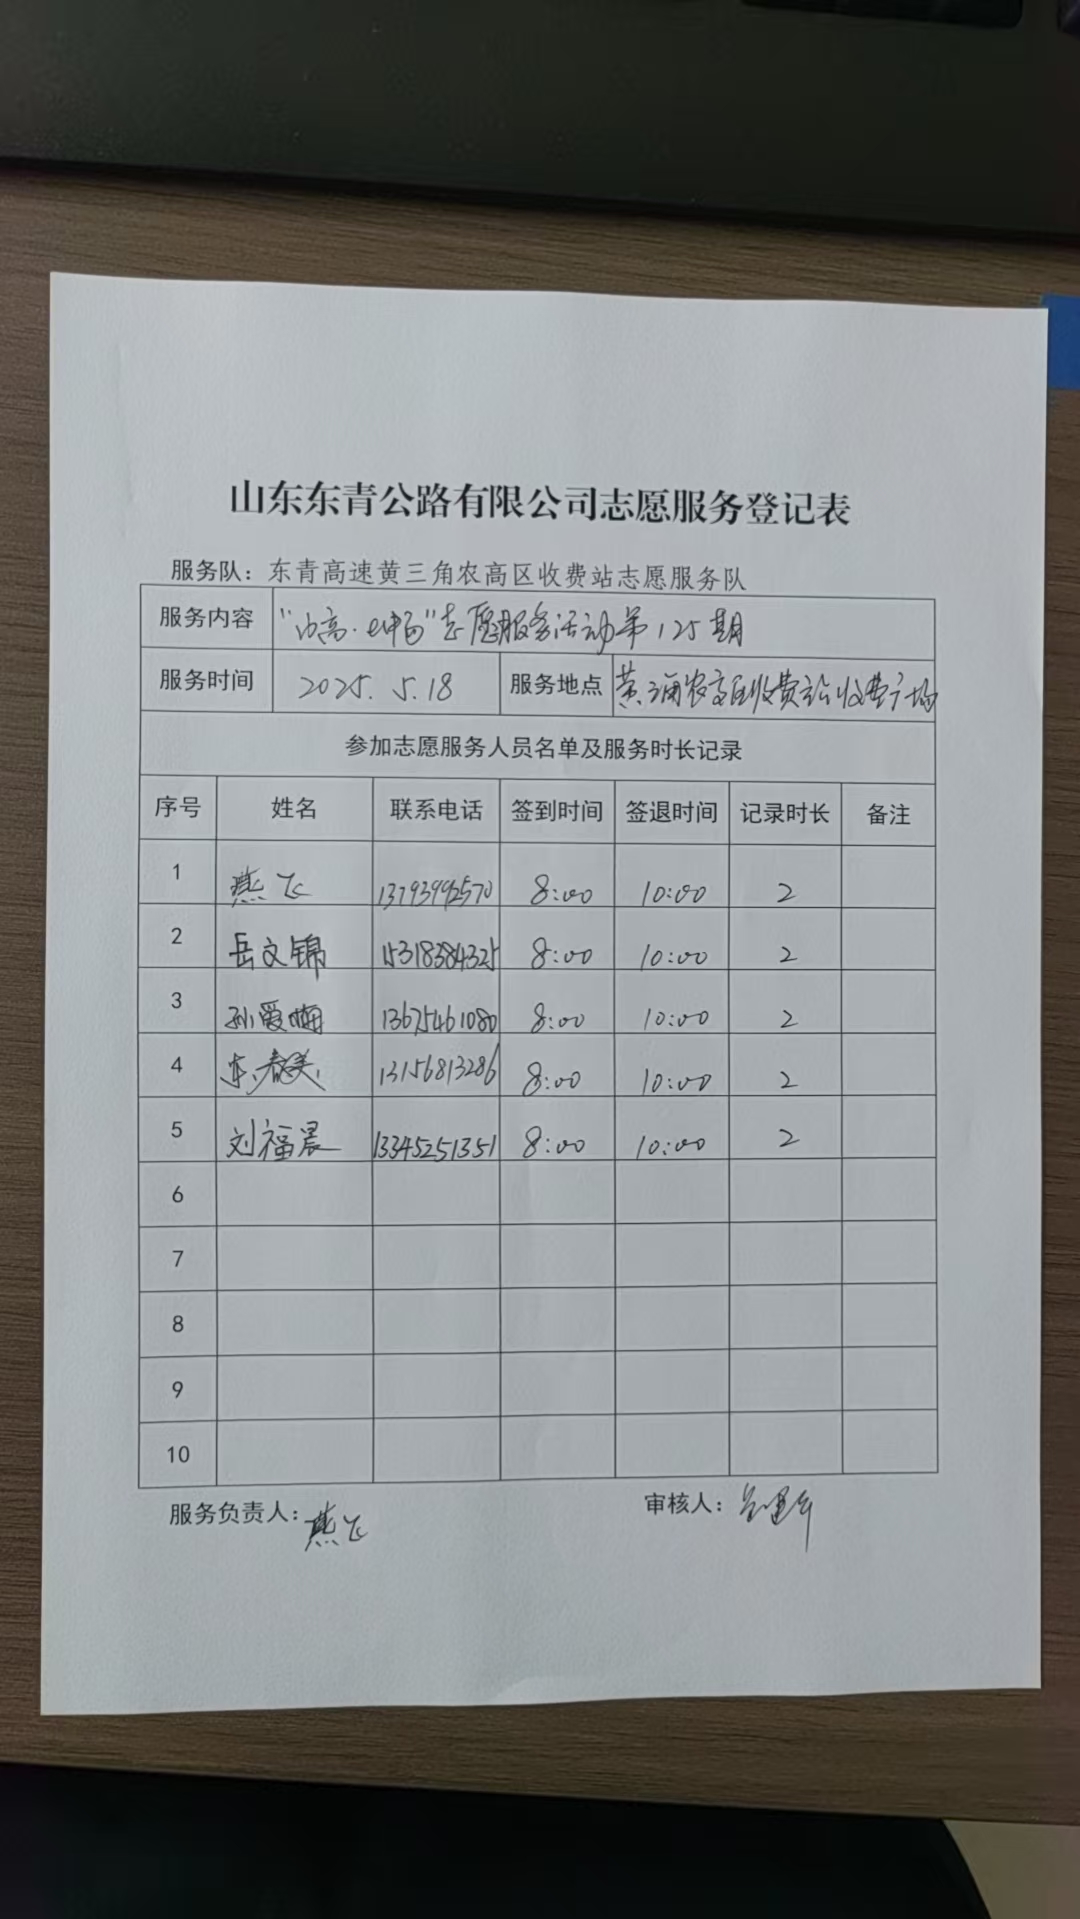 山东东青公路有限公司志愿服务登记表
服务队：东青高速黄三角农高区收费站志愿服务队
服务内容 "山高·e中畅"志愿服务活动第125期
服务时间 2025.5.18 服务地点 黄三角农高区收费站收费广场
参加志愿服务人员名单及服务时长记录
序号 姓名 联系电话 签到时间 签退时间 记录时长 备注
1 燕飞 13793992570 8:00 10:00 2
2 岳文锦 15318384325 8:00 10:00 2
3 孙爱梅 13675461080 8:00 10:00 2
4 13156813286 8:00 10:00 2
5 刘福晨 13345251351 8:00 10:00 2
6
7
8
9
10
服务负责人：燕飞 审核人：